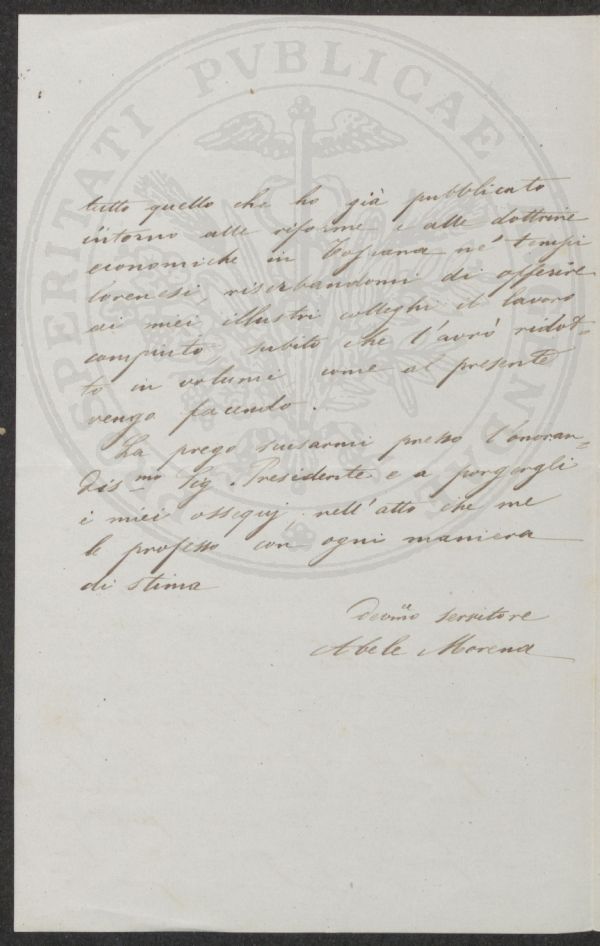 PROSPERITATI PVBLICAE AVGENDAE
tutto quello che ho già pubblicato
intorno alle riforme e alle dottrine
economiche in Toscana ne' tempi
lorenesi, riserbandomi di offerire
ai miei illustri colleghi il lavoro
compiuto, subito che l'avrò ridot-
to in volumi come al presente
vengo facendo.
La prego scusarmi presso l'onoran-
diss.mo Sig. Presidente e a porgergli
i miei ossequj, nell'atto che me
le professo con ogni maniera
di stima
Devmo servitore
Abele Morena